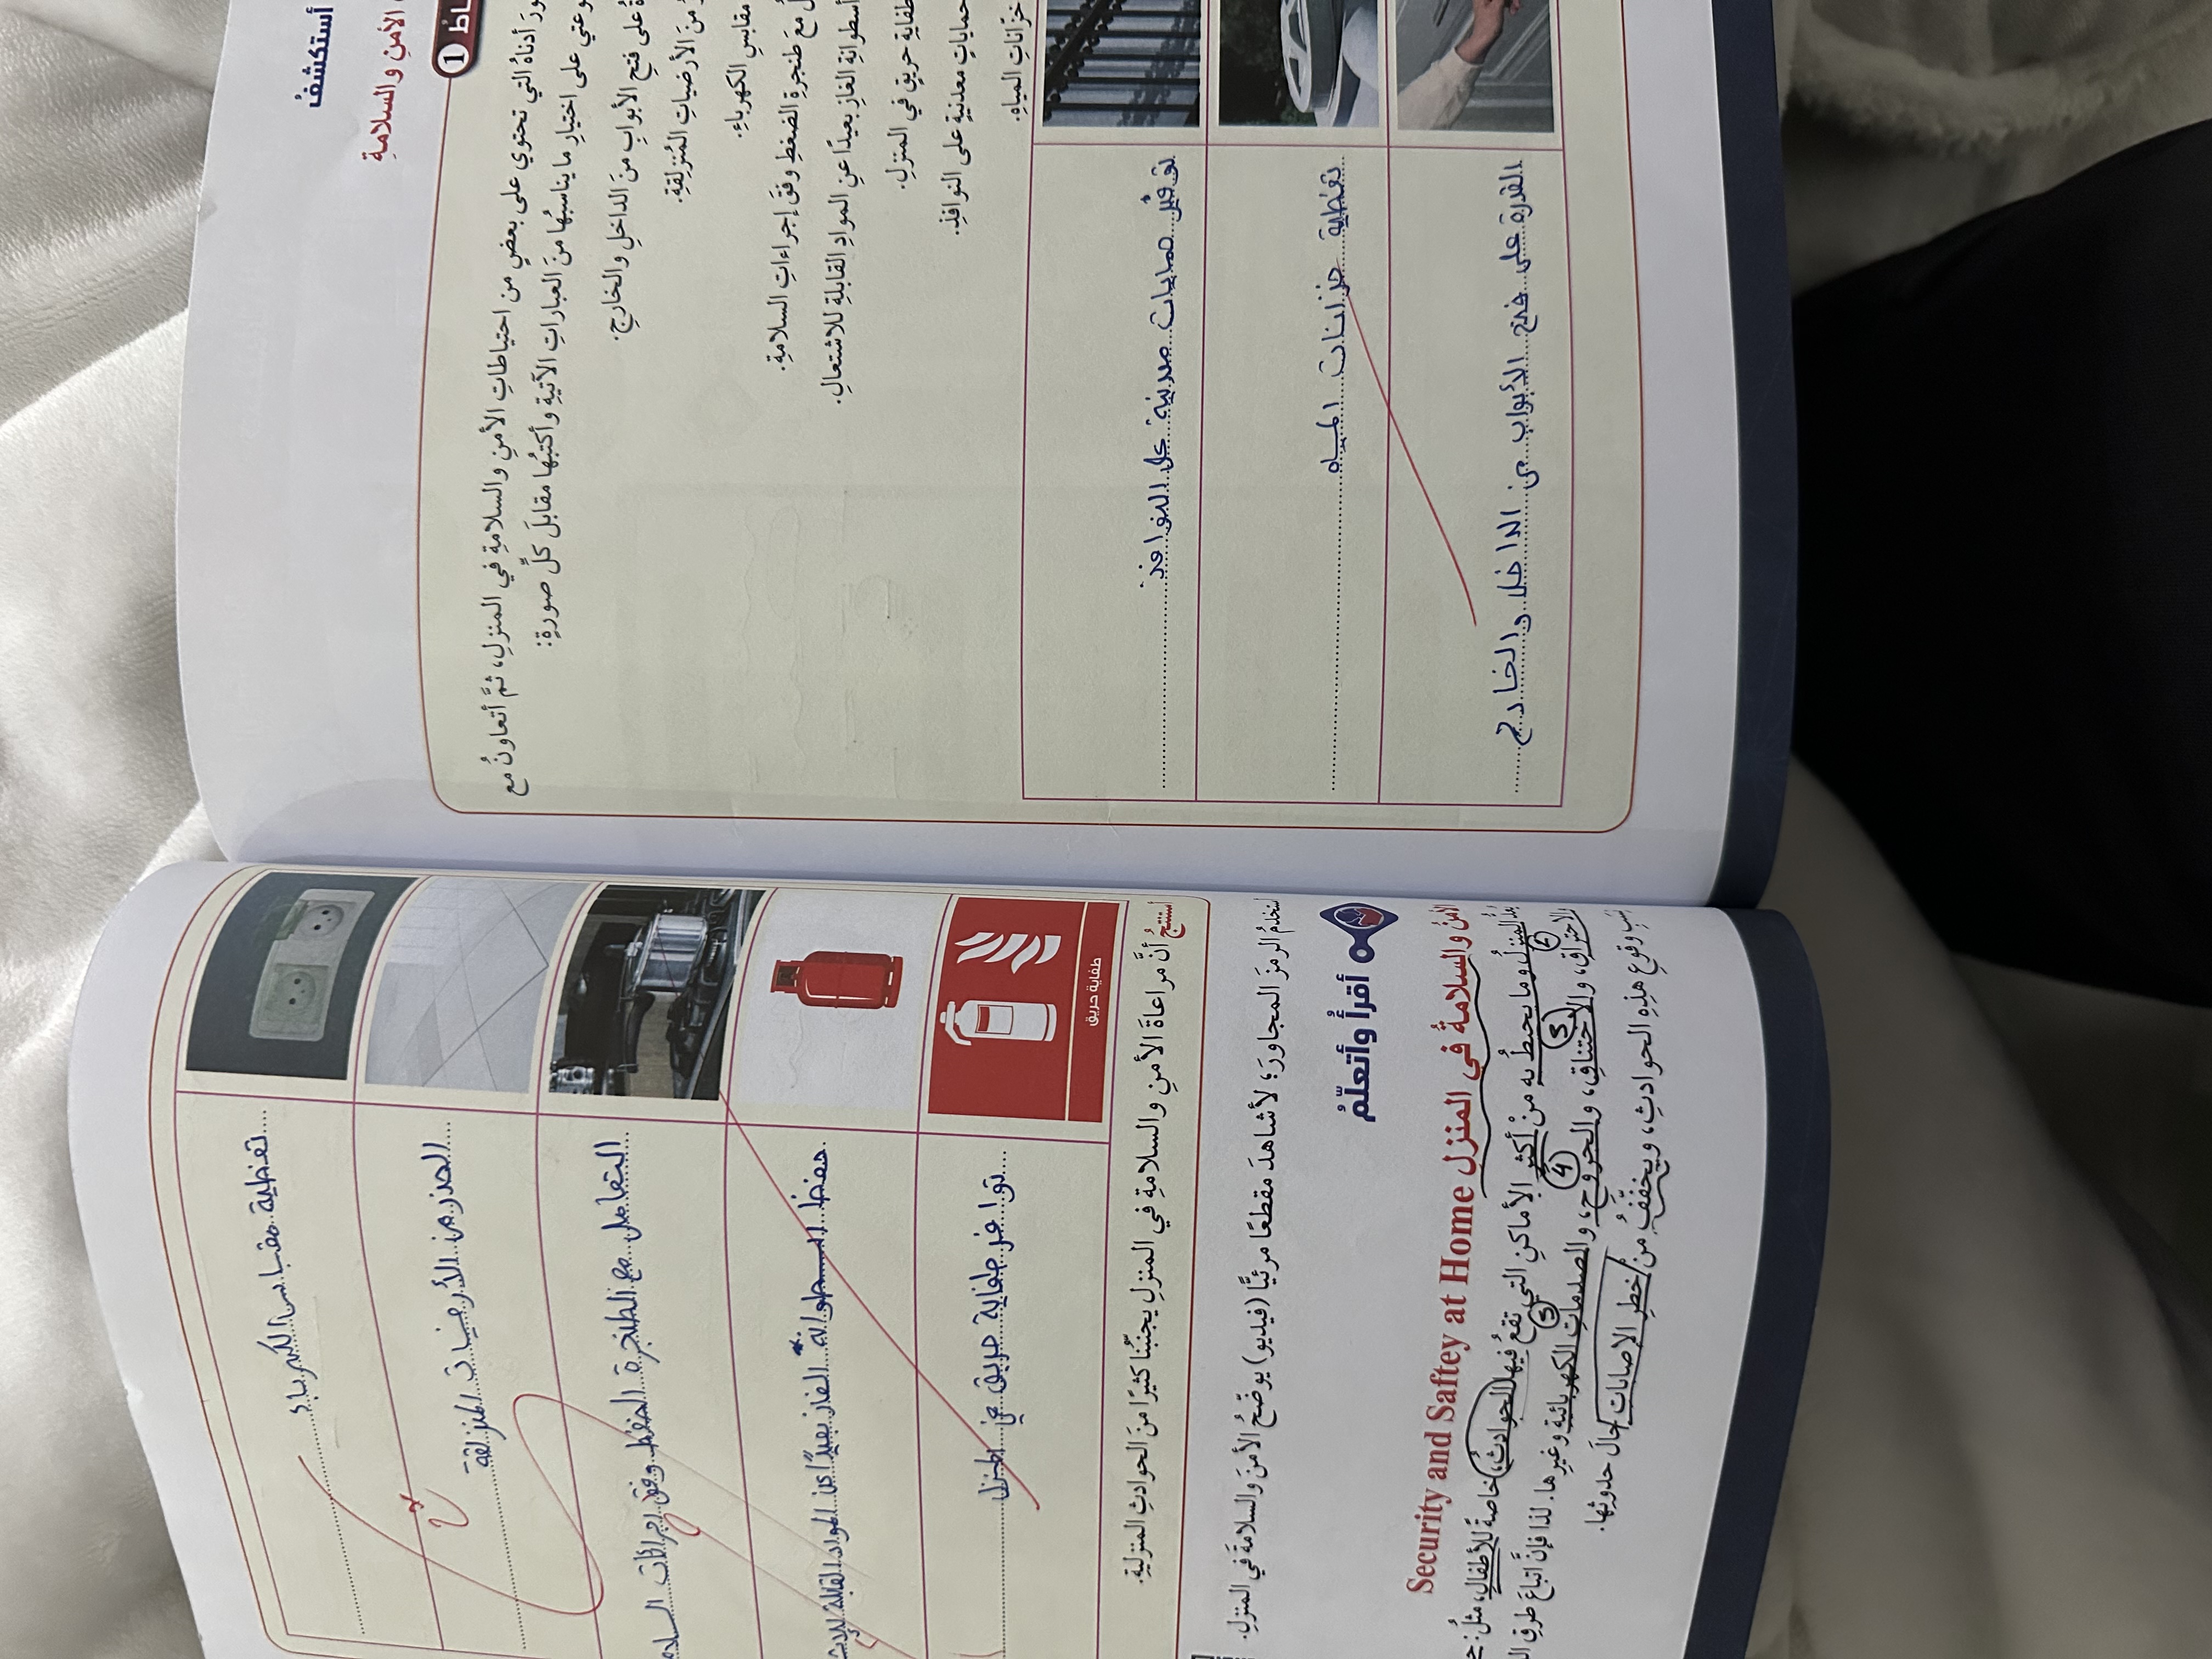 أستكشفُ
الأمن والسلامةِ
1
أدناهُ التي تحتوي على بعضٍ من احتياطاتِ الأمنِ والسلامةِ في المنزلِ، ثمَّ أتعاونُ مع
على اختيارِ ما يناسبُها منَ العباراتِ الآتيةِ وأكتبُها مقابلَ كلِّ صورةٍ:
على فتحِ الأبوابِ منَ الداخلِ والخارجِ.
منَ الأرضياتِ المُنزلِقةِ.
مقابسِ الكهرباءِ.
معَ طنجرةِ الضغطِ وفقَ إجراءاتِ السلامةِ.
أسطوانةِ الغازِ بعيدًا عنِ الموادِ القابلةِ للاشتعالِ.
طفايةِ حريقٍ في المنزلِ.
حماياتٍ معدنيةٍ على النوافذِ.
خزّاناتِ المياهِ.
توفير حمايات معدنية على النوافذ
تغطية خزانات المياه
القدرة على فتح الأبواب من الداخل والخارج
تغطية مقابس الكهرباء
الحذر من الأرضيات المنزلقة
التعامل مع الطنجرة الضغط وفق إجراءات
حفظ اسطوانة الغاز بعيداً عن المواد القابلة
توافر طفاية حريق في المنزل
طفاية حريق
أستنتجُ أنَّ مراعاةَ الأمنِ والسلامةِ في المنزلِ يجنبُنا كثيرًا منَ الحوادثِ المنزليةِ.
الرمزَ المجاورَ؛ لأشاهدَ مقطعًا مرئيًّا (فيديو) يوضّحُ الأمنَ والسلامةَ في المنزلِ.
أقرأُ وأتعلّمُ
الأمنُ والسلامةُ في المنزل Security and Saftey at Home
يعدُّ المنزلُ وما يحيطُ به منْ أكثرِ الأماكنِ التي تقعُ فيها الحوادثُ، خاصةً للأطفالِ، مثلُ:
والاحتراقِ، والاختناقِ، والجروحِ، والصدماتِ الكهربائيةِ وغيرِها. لذا فإنَّ اتباعَ طرقِ
2 3 4 5
وقوعِ هذهِ الحوادثِ، ويخفّفُ من خطرِ الإصاباتِ حالَ حدوثِها.